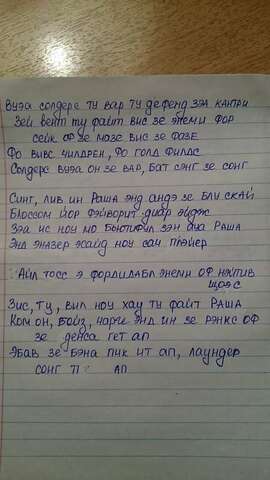 Вуэа солдерс ту вар ту дефенд зэа кантри
Зей вент ту файт виз зе энеми фор
сейк оф зе мазе виз зе фазе
Фо вывс чилдрен, фо голд филдс
Солдерс вуэа он зе вар, бат сэнг зе сонг
Синг, лив ин Раша энд андэ зе блу скай
Блоссом йор фэйворит диар эйджс
Зэа ис ноу мо бьютифул зэн ауа Раша
Энд эназер эсайд ноу сач плэйер
Айл тосс э формидабл энеми оф нэйтив
Зис, ту, вил ноу хау ту файт Раша
Ком он, бойз, чарге энд ин зе рэнкс оф
зе денса гет ап
Эбав зе бэна пик ит ап, лаундер
сонг ап